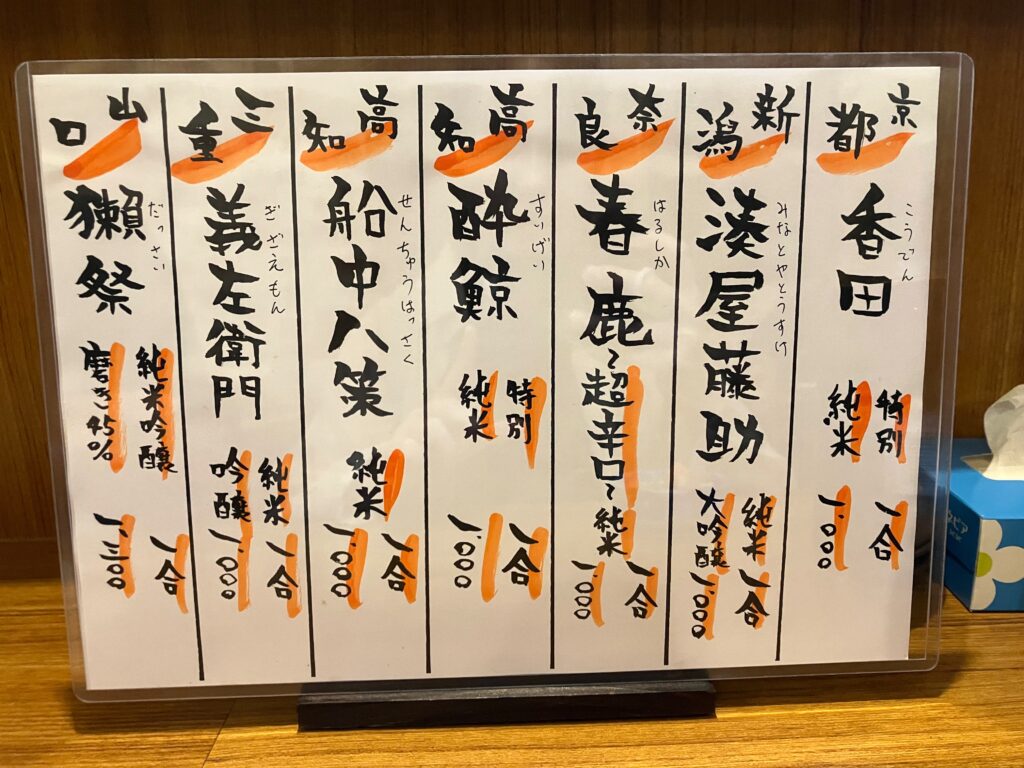 京都
香田
こうでん
特別
純米
一合
一、〇〇〇
新潟
湊屋藤助
みなとやとうすけ
純米
大吟醸
一合
一、〇〇〇
奈良
春鹿
はるしか
〜超辛口〜純米
一合
一、〇〇〇
高知
酔鯨
すいげい
特別
純米
一合
一、〇〇〇
高知
船中八策
せんちゅうはっさく
純米
一合
一、〇〇〇
三重
義左衛門
ぎざえもん
純米
吟醸
一合
一、〇〇〇
山口
獺祭
だっさい
純米吟醸
磨き45%
一合
一、三〇〇